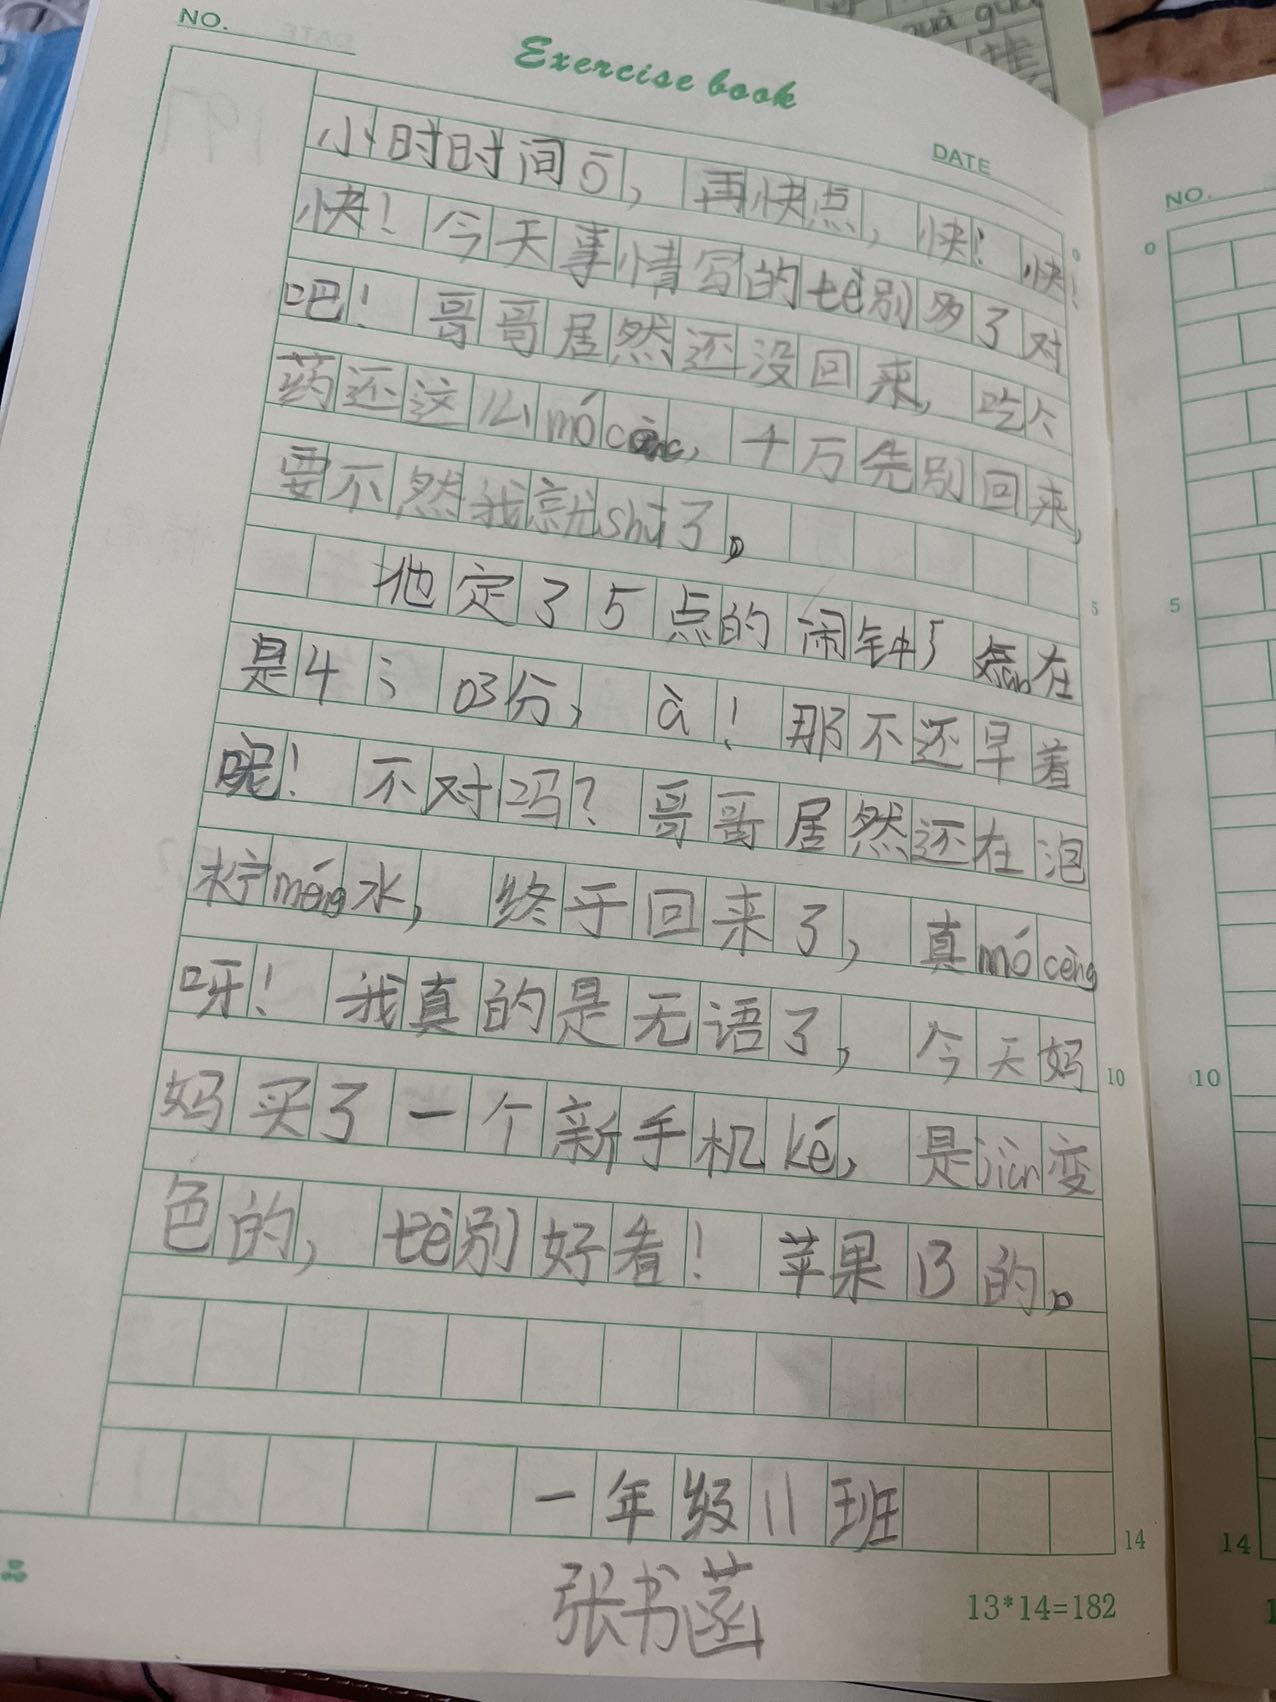 NO.
Exercise book
DATE
小时时间ō，再快点，快！快！
快！今天事情写的tè别多了对
吧！哥哥居然还没回来，吃个
药还这么mó，千万先别回来，
要不然我就shū了。
他定了5点的闹钟，在
是4：03分，à！那不还早着
呢！不对吗？哥哥居然还在泡
柠méng水，终于回来了，真mó cèng
呀！我真的是无语了，今天妈
妈买了一个新手机ké，是jiàn变
色的，tè别好看！苹果13的。
一年级11班
张书菡
13*14=182
0
5
10
14
NO.
0
5
10
14
guā guā